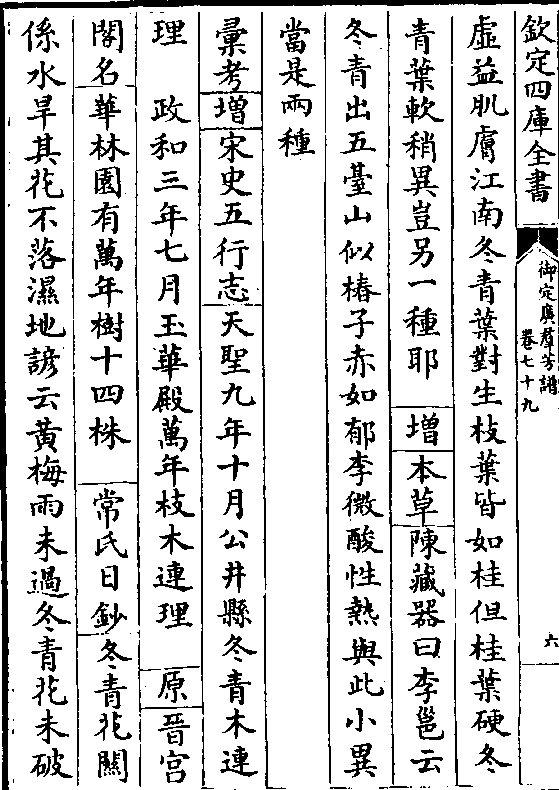 欽定四庫全書
御定廣羣芳譜
卷七十九
六
虛益肌膚江南冬青葉對生枝葉皆如桂但桂葉硬冬
青葉軟稍異豈另一種耶 增本草陳藏器曰李邕云
冬青出五臺山似椿子赤如郁李微酸性熱與此小異
當是兩種
彙考增宋史五行志天聖九年十月公井縣冬青木連
理 政和三年七月玉華殿萬年枝木連理 原晉宮
閣名華林園有萬年樹十四株 常氏日鈔冬青花關
係水旱其花不落濕地諺云黃梅雨未過冬青花未破